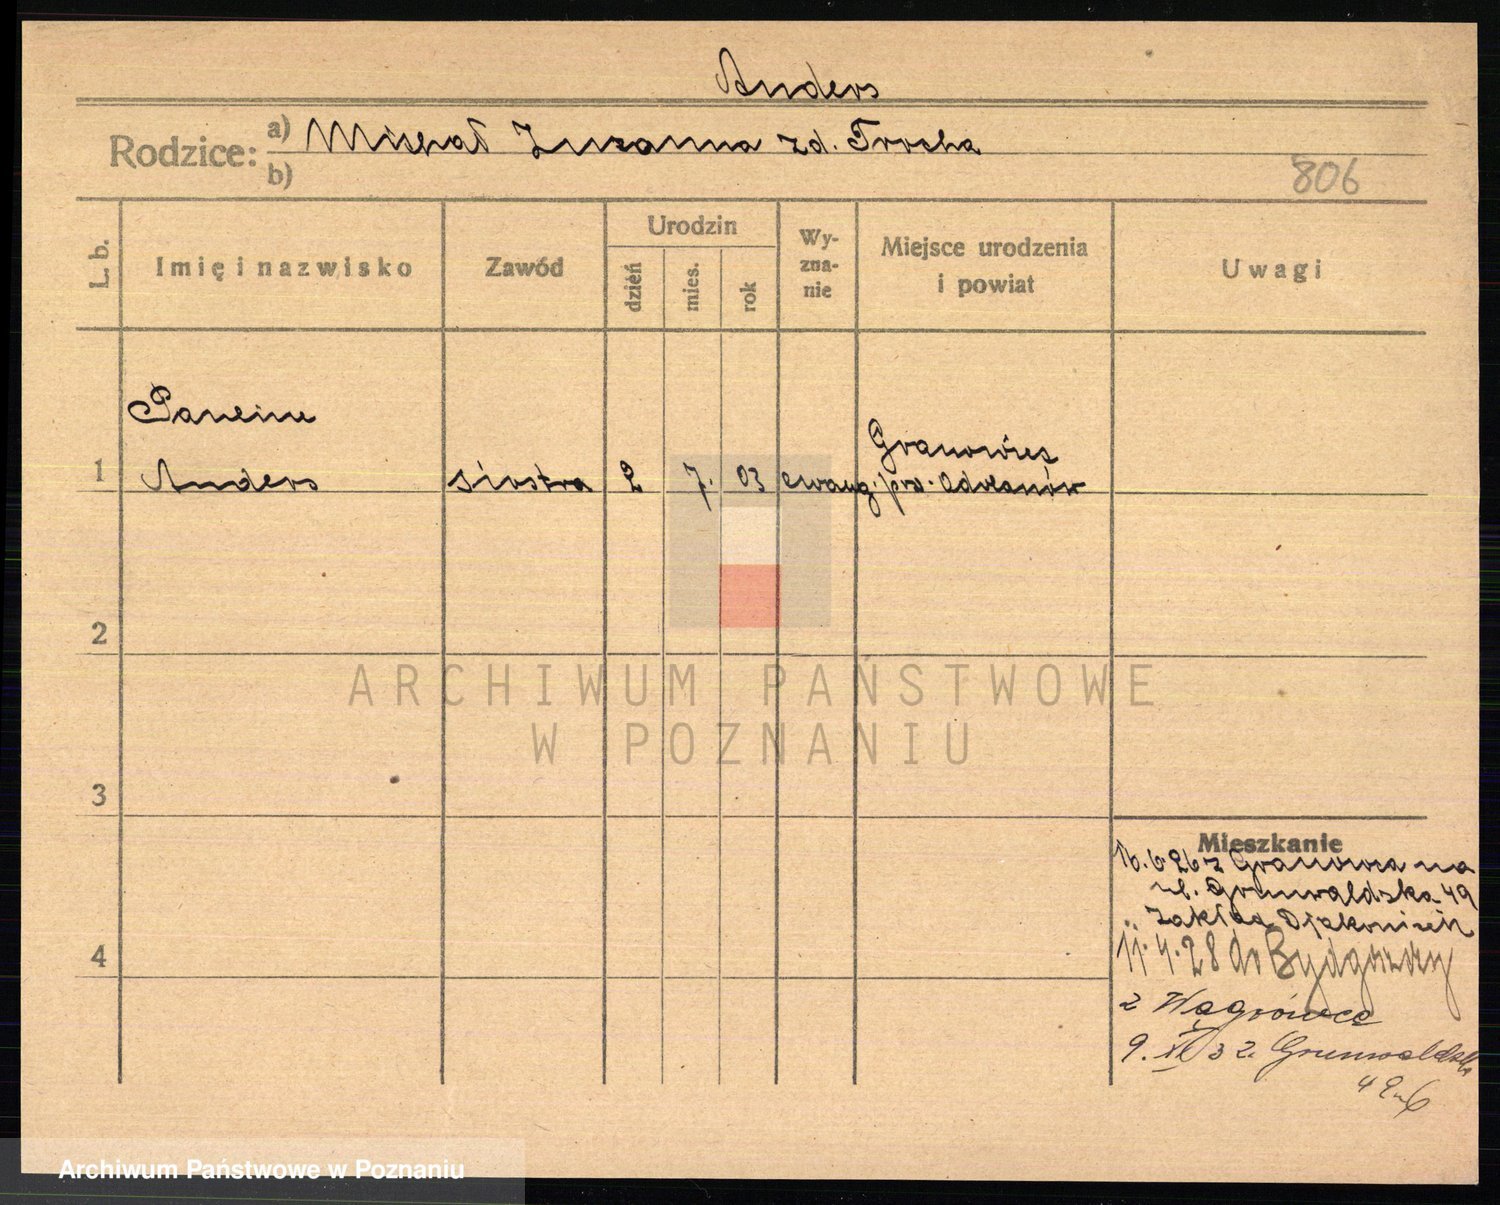 Anders
Rodzice: a) Michał Zuzanna zd. Trocha
b)
806
L. b.
Imię i nazwisko
Zawód
Urodzin
dzień
mies.
rok
Wy-
zna-
nie
Miejsce urodzenia
i powiat
Uwagi
Pauline
1 Anders siostra 2 7. 03 ewang. Granowiec
pow. Odolanów
2
ARCHIWUM PAŃSTWOWE
W POZNANIU
3
Mieszkanie
16.6 26 z Granowca na
ul. Grunwaldska 49
Zakład Djakonisek
4
11.4.28 do Bydgoszczy
z Wągrówca
9. XI 32. Grunwaldzka
49
Archiwum Państwowe w Poznaniu